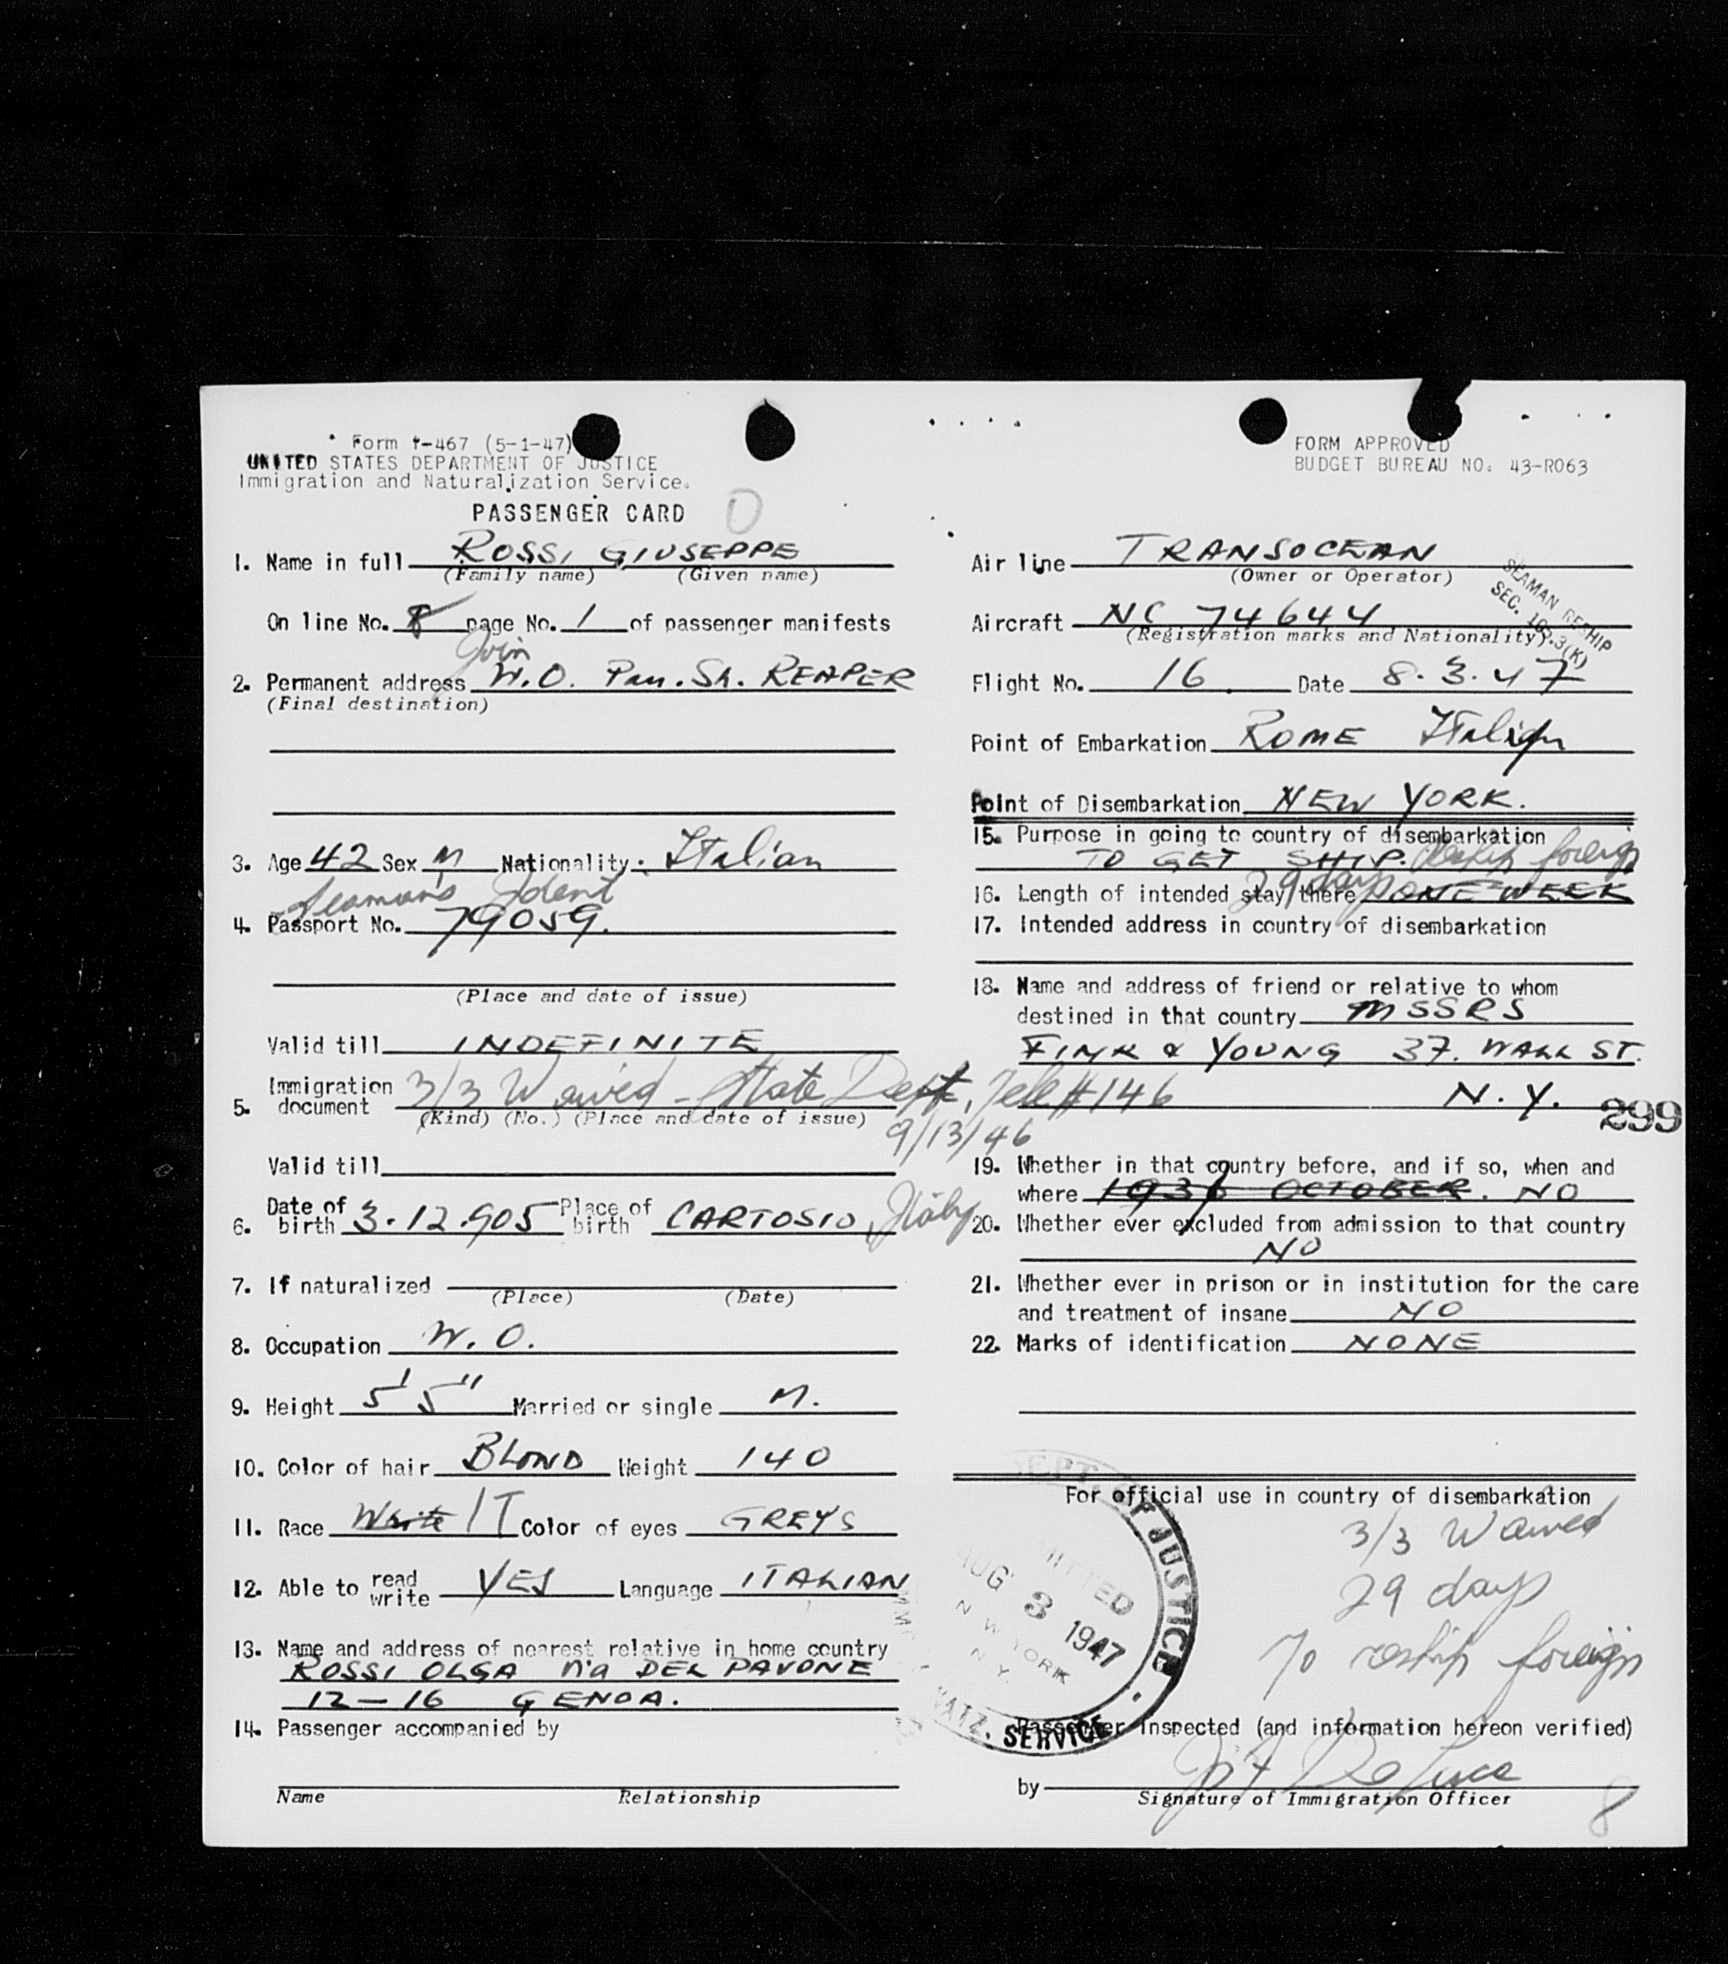 Form I-467 (5-1-47)
UNITED STATES DEPARTMENT OF JUSTICE
Immigration and Naturalization Service.
PASSENGER CARD
O
1. Name in full ROSSI GIUSEPPE
(Family name) (Given name)
On line No. 8 page No. 1 of passenger manifests
Join
2. Permanent address W.O. Pan. Sh. REAPER
(Final destination)
3. Age 42 Sex M Nationality. Italian
Seaman's Ident
4. Passport No. 79059.
(Place and date of issue)
Valid till INDEFINITE
5. Immigration document 3/3 Waived - State Dept, Tele # 146
(Kind) (No.) (Place and date of issue)
9/13/46
Valid till
6. Date of birth 3.12.905 Place of birth CARTOSIO, Italy
7. If naturalized
(Place) (Date)
8. Occupation W.O.
9. Height 5' 5" Married or single M.
10. Color of hair BLOND Weight 140
11. Race White IT Color of eyes GREYS
12. Able to read write YES Language ITALIAN
13. Name and address of nearest relative in home country
ROSSI OLGA DEL PAVONE
12-16 GENOA.
14. Passenger accompanied by
Name Relationship
FORM APPROVED
BUDGET BUREAU NO. 43-R063
Air line TRANSOCEAN
(Owner or Operator)
SEAMAN RESHIP
SEC. 165.3(K)
Aircraft NC 74644
(Registration marks and Nationality)
Flight No. 16 Date 8.3.47
Point of Embarkation ROME Italy
Point of Disembarkation NEW YORK.
15. Purpose in going to country of disembarkation
TO GET SHIP. reship foreign
16. Length of intended stay there 29 days ONE WEEK
17. Intended address in country of disembarkation
18. Name and address of friend or relative to whom
destined in that country MSSRS
FINK & YOUNG 37. WALL ST.
N.Y.
299
19. Whether in that country before, and if so, when and
where 1936 OCTOBER. NO
20. Whether ever excluded from admission to that country
NO
21. Whether ever in prison or in institution for the care
and treatment of insane NO
22. Marks of identification NONE
For official use in country of disembarkation
3/3 Waived
29 days
To reship foreign
DEPT. OF JUSTICE
ADMITTED
AUG 3 1947
NEW YORK
N.Y.
NATZ. SERVICE
Passenger Inspected (and information hereon verified)
by De Luca
Signature of Immigration Officer
8